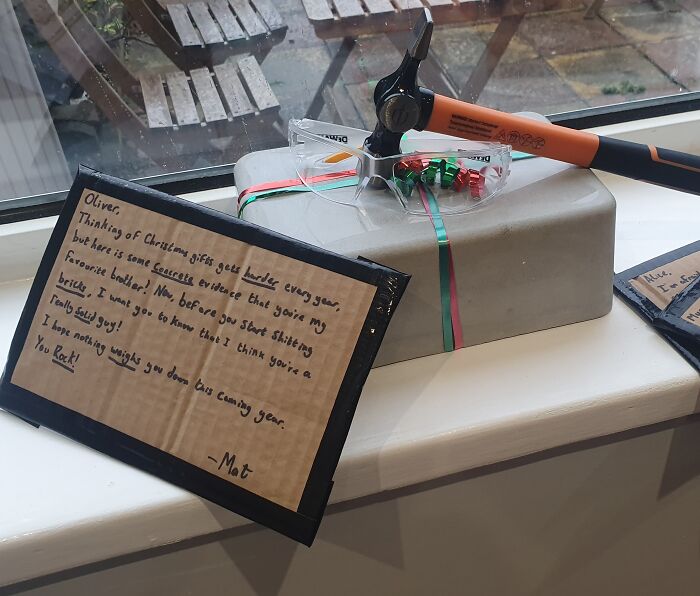 Oliver,
Thinking of Christmas gifts gets harder every year,
but here is some concrete evidence that you're my
favourite brother! Now, before you start shitting
bricks, I want you to know that I think you're a
really solid guy!
I hope nothing weighs you down this coming year.
You Rock!
- Mat
Alice,
I'm